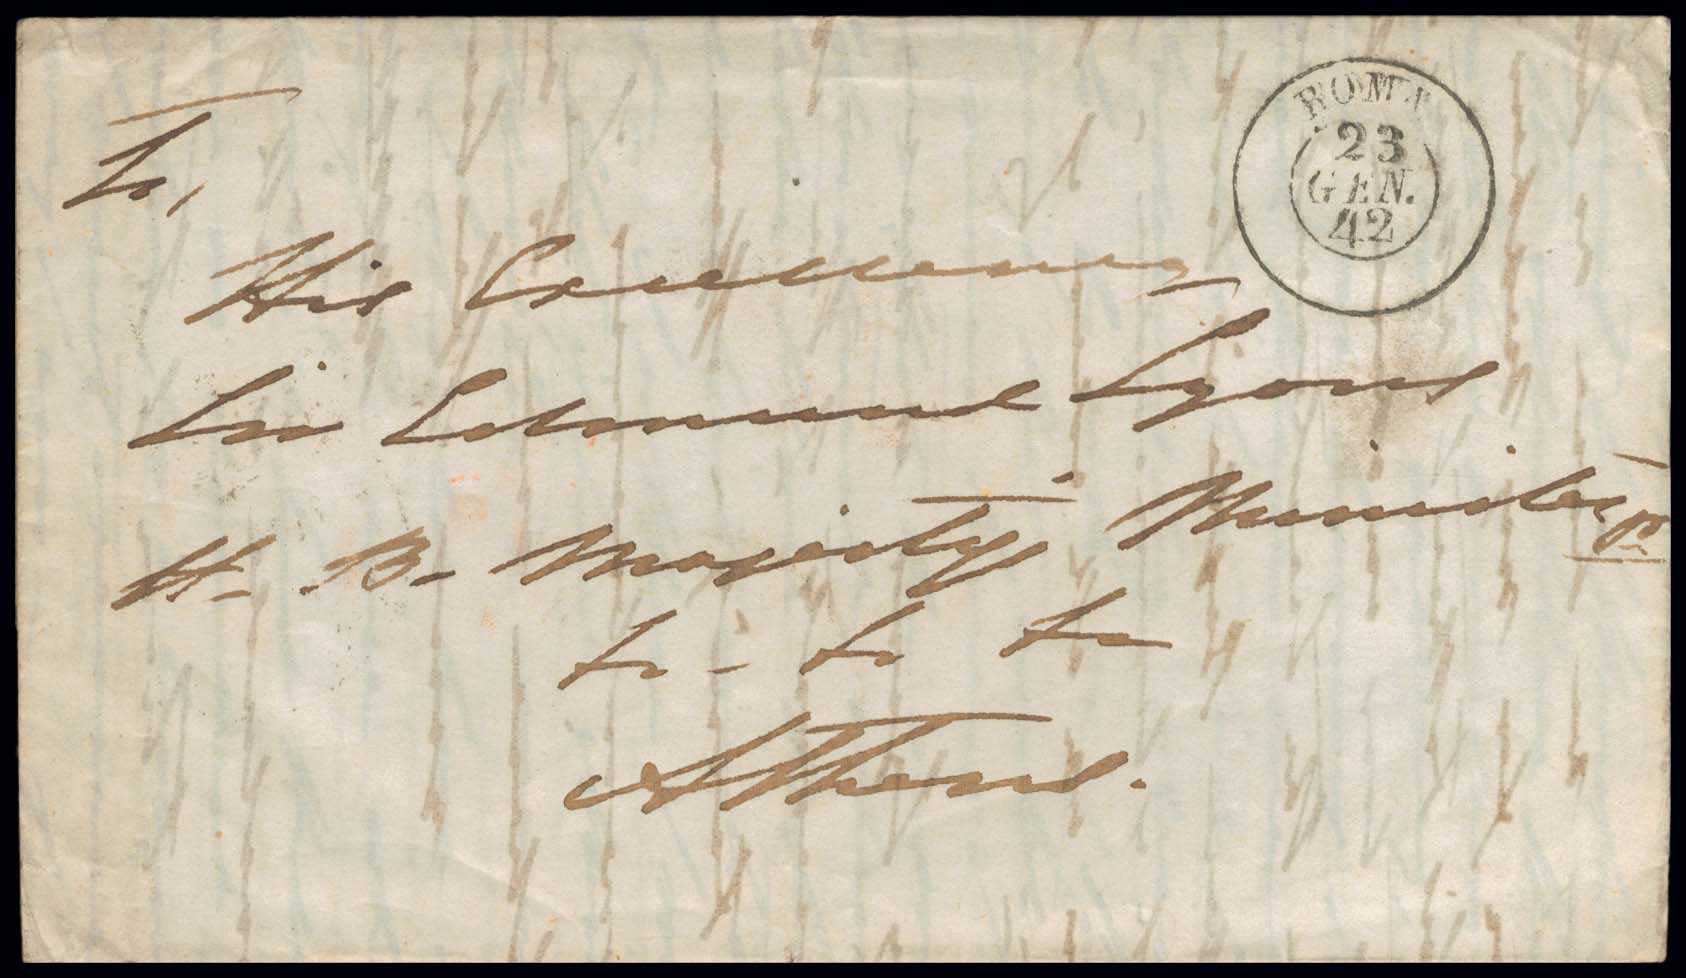 ROMA
23
GEN.
42
To,
His Excellency
Sir Edmund Lyons
H. B. Majesty's Minister
&c - &c &c
Athens.